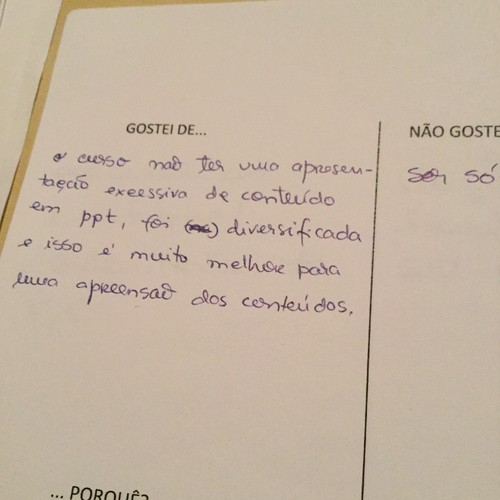 GOSTEI DE...
o curso não ter uma apresen-
tação excessiva de conteúdo
em ppt, foi diversificada
e isso é muito melhor para
uma apreensão dos conteúdos.
NÃO GOSTE
Ser só
... PORQUÊ?